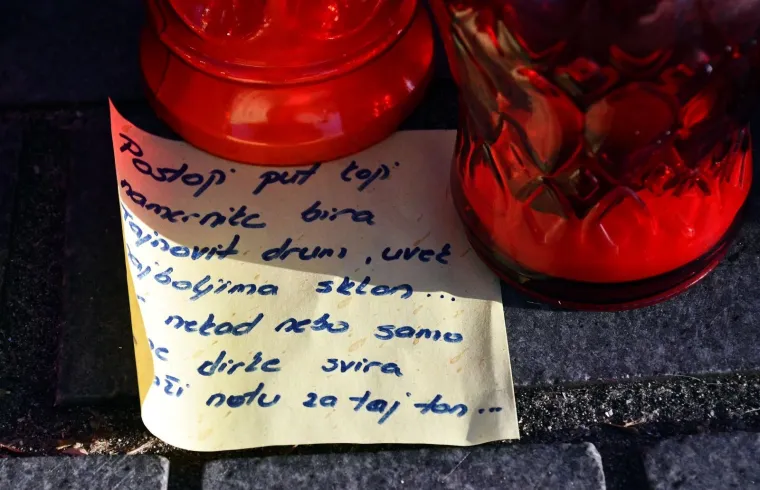 Postoji put koji
namernike bira
Tajnovit drum, uvek
najboljima sklon...
nekad nebo samo
dirke svira
noti notu za taj ton...